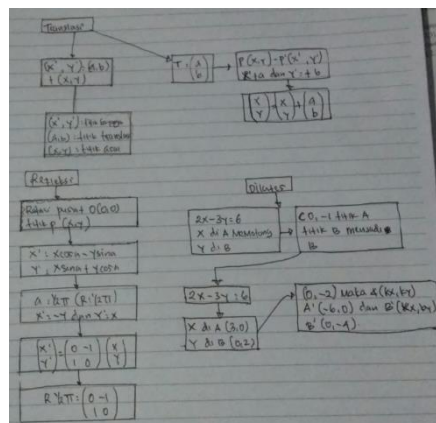 Translasi
(x', y') = (a,b)
+ (x,y)
T = (a
b)
P(x,y) - P'(x', y')
dan y' = + b
(x
y) = (x
y) + (a
b)
(x', y') =
(a,b) = titik
(x,y) = titik
Rotasi
pusat O(0,0)
titik P (x,y)
x' = x cos a - y sin a
y' = x sin a + y cos a
a = 1/2π (R 1/2π)
x' = -y dan y' = x
(x'
y') = (0 -1
1 0) (x
y)
R 1/2π = (0 -1
1 0)
Dilatasi
2x - 3y = 6
x di A memotong
y di B
[0, -2] titik A
titik B menjadi
B
2x - 3y = 6
x di A (3,0)
y di B (0,2)
(0, -2) maka A (kx, ky)
A' (-6,0) dan B' (kx, ky)
B' (0, -4)